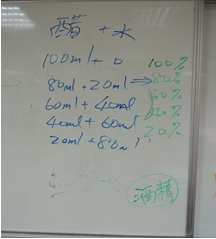 醋 + 水
100ml + 0 100%
80ml + 20ml → 80%
60ml + 40ml 60%
40ml + 60ml 40%
20ml + 80ml 20%
酒精